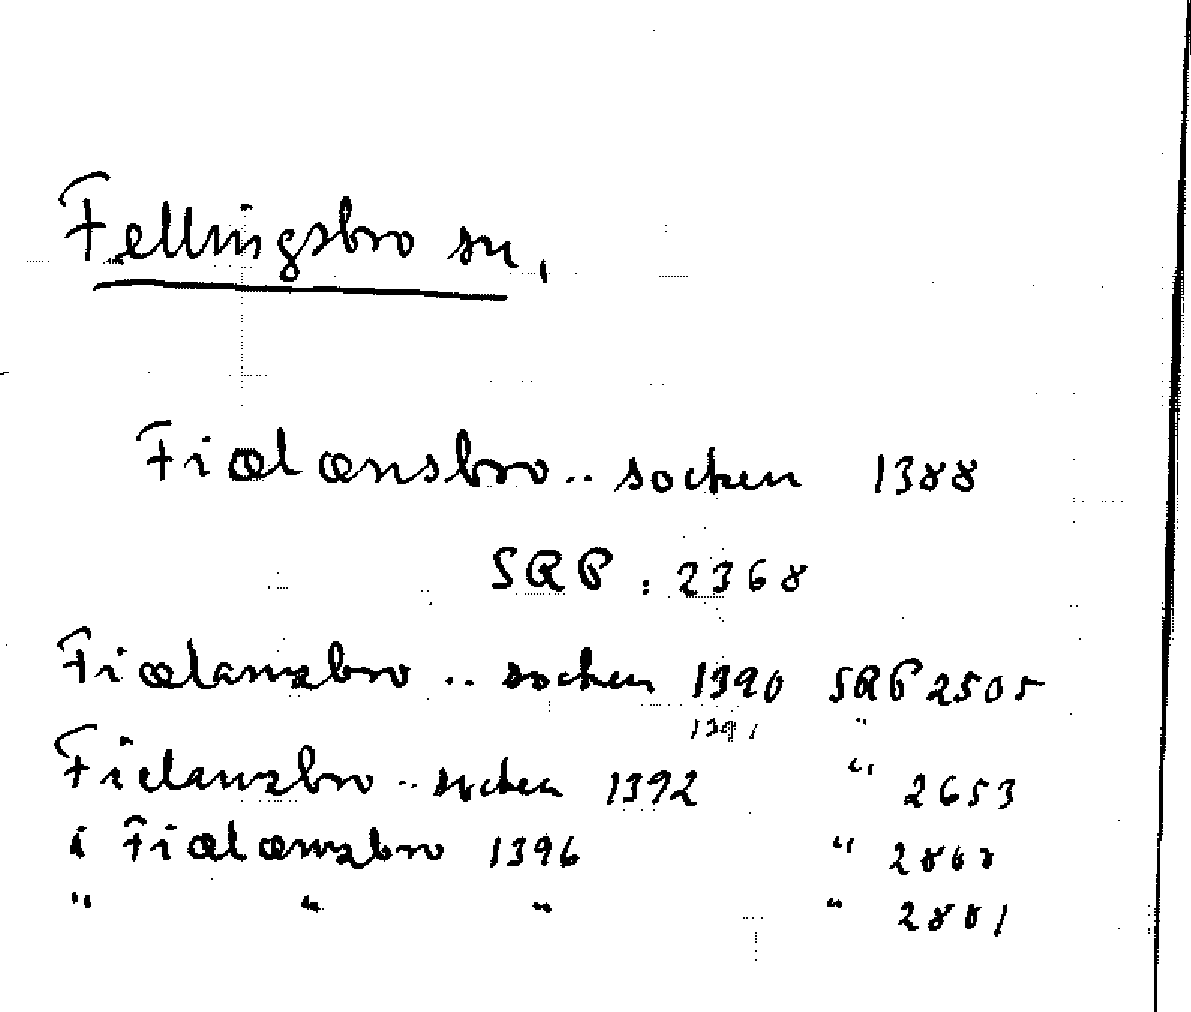 Fellingsbro sn,
Fiælænsbro.. socken 1388
SRP : 2368
Fiælanzbro .. socken 1390 SRP 2505
1391 "
Fielanzbro .. socken 1392 " 2653
i Fiælænzbro 1396 " 2868
" " " " 2881